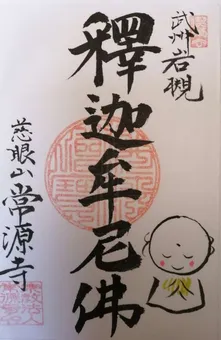 武州岩槻
釋迦牟尼佛
慈眼山常源寺